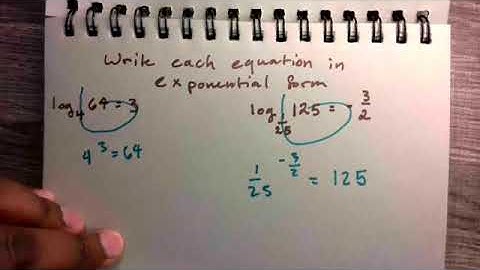 Write each equation in
exponential form
log₄ 64 = 3
4³ = 64
log_{1/25} 125 = -3/2
1/25^{-3/2} = 125